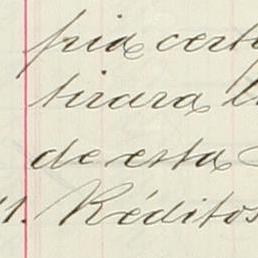 pia cert
tirara l
de esta
11. Réditos